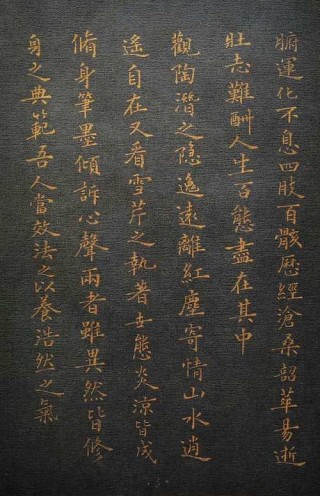 腑運化不息四肢百骸歷經滄桑韶華易逝
壯志難酬人生百態盡在其中
觀陶潛之隐逸遠離紅塵寄情山水逍
遙自在又看雪芹之執著世態炎涼皆成
脩身筆墨傾訴心聲兩者雖異然皆修
身之典範吾人當效法之以養浩然之氣